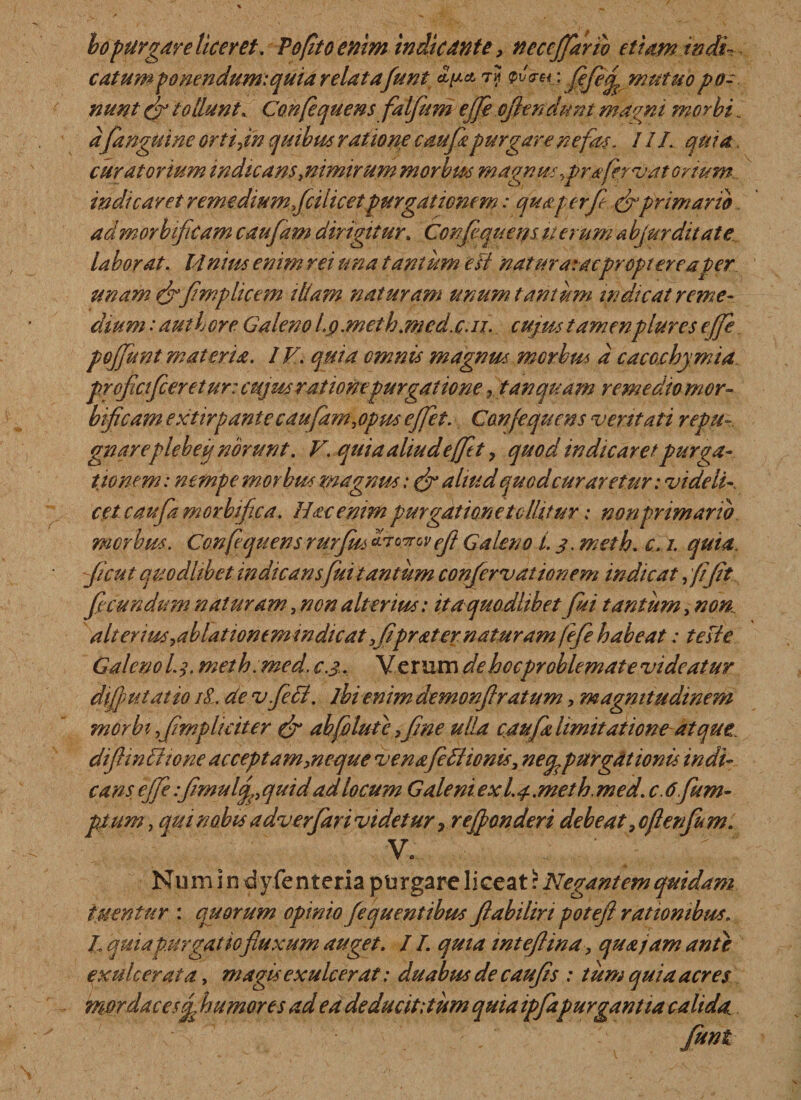 bo purgare liceret. Posito enim indicante, necessario etiam indi-
catum ponendum: quia relata sunt ἅμα τῇ φύσει: seseq; mutuo po-
nunt & tollunt. Consequens falsum esse ostendunt magni morbi
à sanguine orti, in quibus ratione causæ purgare nefas. III. quia
curatorium indicans, nimirum morbus magnus, præservatorium
indicaret remedium, scilicet purgationem: quæ per se & primariò
ad morbificam causam dirigitur. Consequens uerum absurditate
laborat. Unius enim rei una tantùm est natura: ac proptereà per
unam & simplicem illam naturam unum tantùm indicat reme-
dium: authore Galeno l.9. meth. med. c. 11. cujus tamen plures esse
possunt materiæ. IV. quia omnis magnus morbus à cacochymia
proficisceretur: cujus ratione purgatione, tanquam remedio mor-
bificam extirpante causam, opus esset. Consequens veritati repu-
gnare plebeij nôrunt. V. quia aliud esset, quod indicaret purga-
tionem: nempe morbus magnus: & aliud quod curaretur: videli-
cet causa morbifica. Hæc enim purgatione tollitur: non primariò
morbus. Consequens rursus ἄτοπον est Galeno l. 3. meth. c. 1. quia
sicut quodlibet indicans sui tantùm conservationem indicat, si sit
secundum naturam, non alterius: ita quodlibet sui tantùm, non
alterius, ablationem indicat, si præter naturam sese habeat: teste
Galeno l.3. meth. med. c.3. Verum de hoc problemate videatur
disputatio 18. de v. sect. Ibi enim demonstratum, magnitudinem
morbi, simpliciter & absolutè, sine ulla causæ limitatione atque
distinctione acceptam, neque venæ sectionis, neq; purgationis indi-
cans esse: simulq;, quid ad locum Galeni ex l.4. meth. med. c. 6. sum-
ptum, qui nobis adversari videtur, responderi debeat, ostensum.
V.
Num in dysenteria purgare liceat? Negantem quidam
tuentur: quorum opinio sequentibus stabiliri potest rationibus.
I. quia purgatio fluxum auget. II. quia intestina, quæ jam antè
exulcerata, magis exulcerat: duabus de causis: tùm quia acres
mordacesq; humores ad ea deducit: tùm quia ipsa purgantia calida
sunt